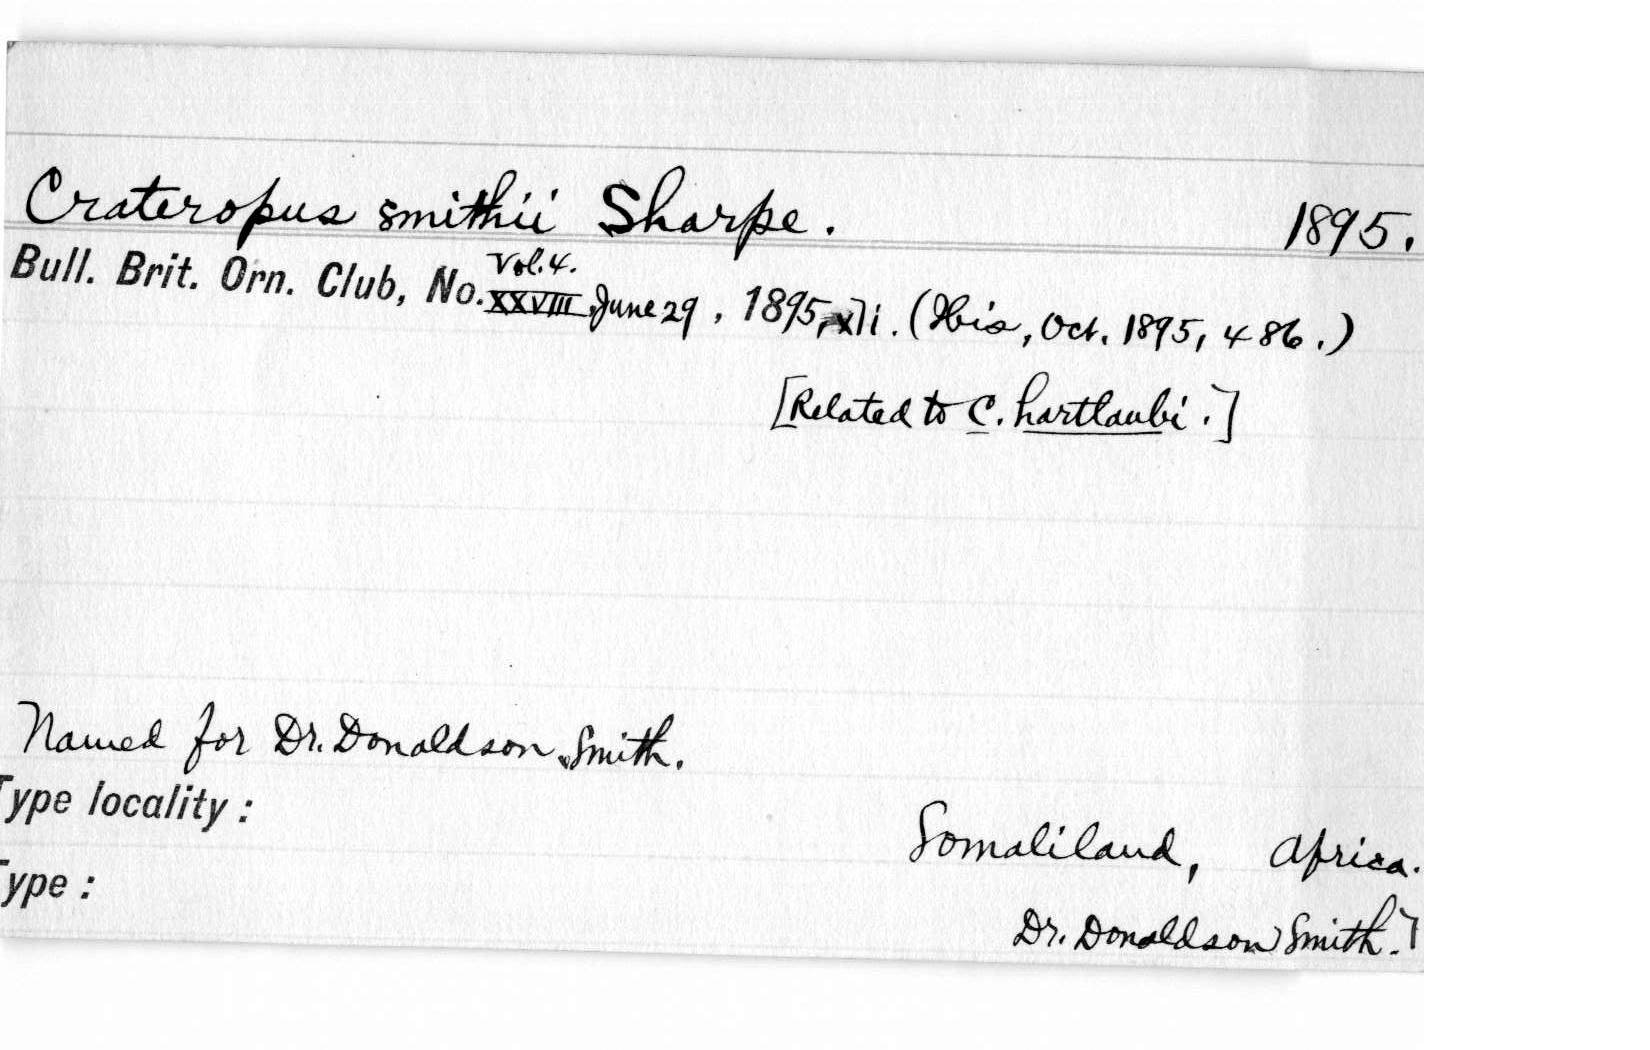 Crateropus smithii Sharpe. 1895.
Vol. 4.
Bull. Brit. Orn. Club, No. XXVIII, June 29, 1895, xli. (Ibis, Oct. 1895, 486.)
[Related to C. hartlaubi.]
Named for Dr. Donaldson Smith.
Type locality:
Somaliland, Africa.
Type:
Dr. Donaldson Smith.]